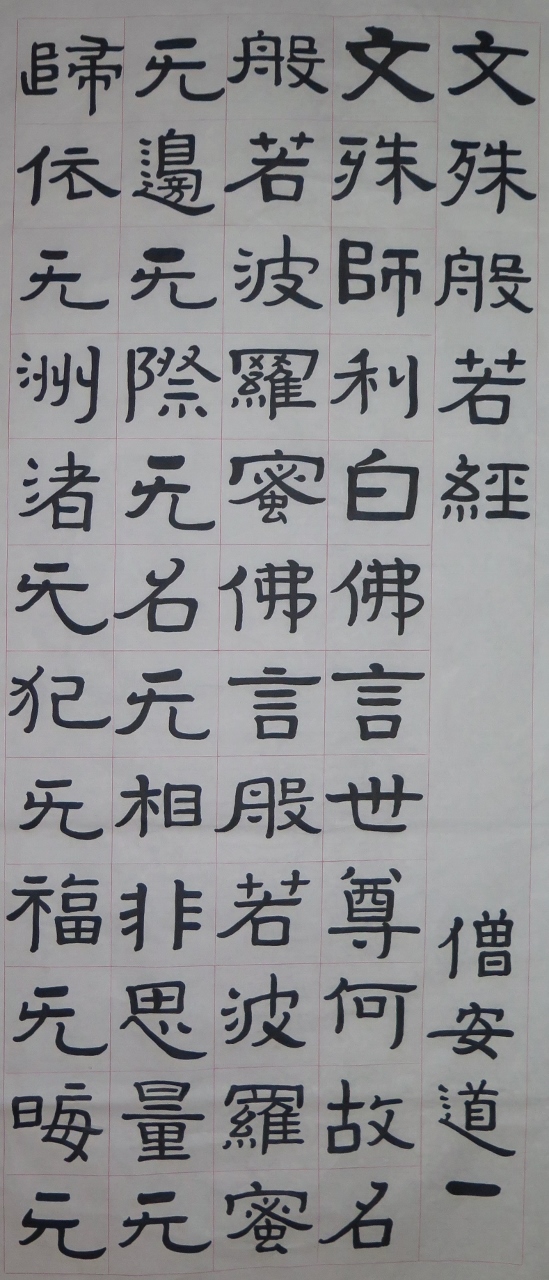 文殊般若經 僧安道一
文殊師利白佛言世尊何故名
般若波羅蜜佛言般若波羅蜜
无邊无際无名无相非思量无
歸依无洲渚无犯无福无晦元